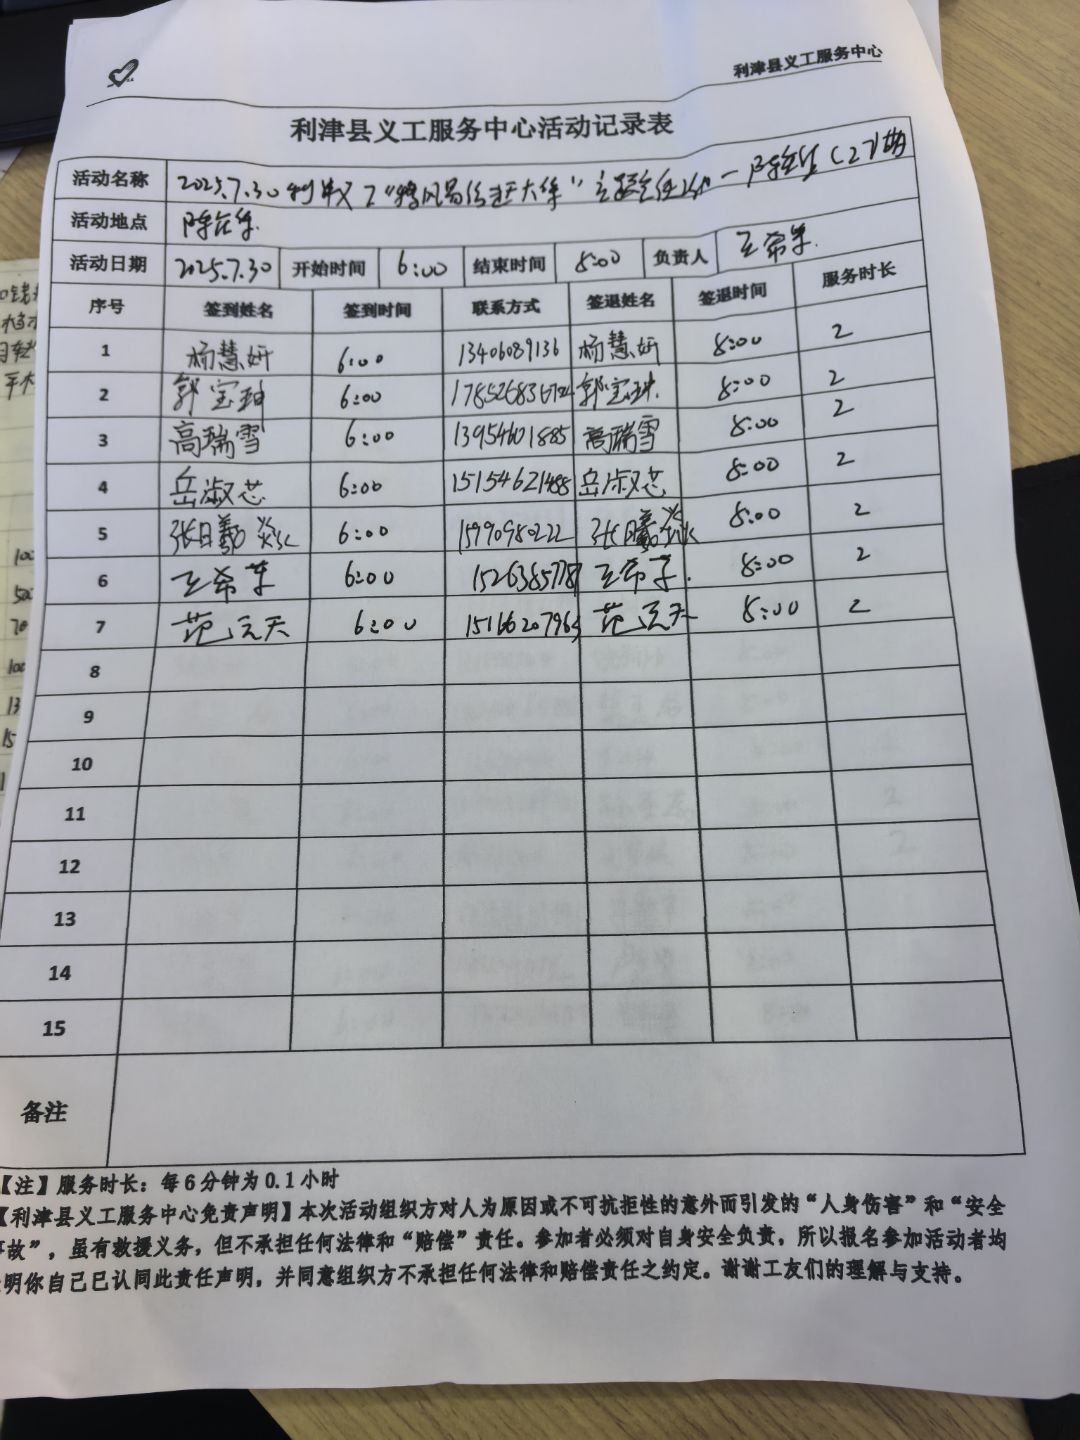 利津县义工服务中心
利津县义工服务中心活动记录表
活动名称 2025.7.30 利津义工 "
活动地点
活动日期 2025.7.30 开始时间 6:00 结束时间 8:00 负责人
序号 签到姓名 签到时间 联系方式 签退姓名 签退时间 服务时长
1 杨慧妍 6:00 13406089136 杨慧妍 8:00 2
2 郭宝珅 6:00 郭宝珅 8:00 2
3 高瑞雪 6:00 13954601885 高瑞雪 8:00 2
4 岳淑芯 6:00 15154621488 岳淑芯 8:00 2
5 张日曦 6:00 15990980222 张曦 8:00 2
6 6:00 8:00 2
7 范 6:00 范 8:00 2
8
9
10
11
12
13
14
15
备注
【注】服务时长：每6分钟为0.1小时
【利津县义工服务中心免责声明】本次活动组织方对人为原因或不可抗拒性的意外而引发的"人身伤害"和"安全
事故"，虽有救援义务，但不承担任何法律和"赔偿"责任。参加者必须对自身安全负责，所以报名参加活动者均
明你自己已认同此责任声明，并同意组织方不承担任何法律和赔偿责任之约定。谢谢工友们的理解与支持。